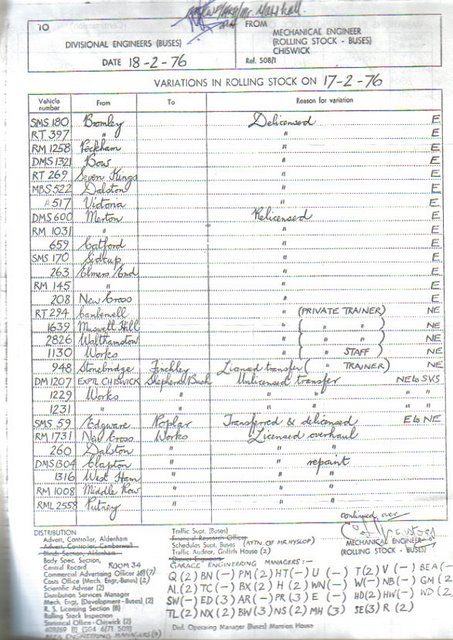 10
DIVISIONAL ENGINEERS (BUSES)
DATE 18-2-76
FROM
MECHANICAL ENGINEER
(ROLLING STOCK - BUSES)
CHISWICK
Ref. 508/1
VARIATIONS IN ROLLING STOCK ON 17-2-76
Vehicle number From To Reason for variation
SMS 180 Bromley Delicensed E
RT 397 " " E
RM 1258 Peckham " E
DMS 1321 Bow " E
RT 269 Seven Kings " E
MBS 522 Dalston " E
" 517 Victoria " E
DMS 600 Merton Relicensed E
RM 1031 " " E
659 Catford " E
SMS 170 Sidcup " E
263 Elmers End " E
RM 145 " " E
208 New Cross " E
RT 294 Camberwell " (PRIVATE TRAINER) NE
1639 Muswell Hill " ( " " ) NE
2826 Walthamstow " ( " " ) NE
1130 Works " ( " STAFF ) NE
948 Stonebridge Finchley Licensed transfer ( " TRAINER) NE
DM 1207 EXPTL CHISWICK Shepherds Bush Unlicensed transfer NE to SVS
1229 Works " " " " "
1231 " " " " " "
SMS 59 Edgware Poplar Transferred & delicensed E to NE
RM 1731 New Cross Works Licensed overhaul
260 Dalston " " "
DMS 1304 Clapton " " repaint
1316 West Ham " " "
RM 1008 Middle Row " " "
RML 2558 Putney " " "
continued over
MECHANICAL ENGINEER
(ROLLING STOCK - BUSES)
DISTRIBUTION
Advert. Controller, Aldenham
Advert. Controller, Camberwell
Body Spec. Section,
Central Record ROOM 34
Commercial Advertising Officer
Costs Office (Mech. Eng.-Buses) (2)
Scientific Adviser (2)
Distribution Services Manager
Mech. Engr. (Development - Buses)
R. S. Licensing Section (8)
Rolling Stock Inspection
Statistical Office - Chiswick (2)
Traffic Supt. (Buses)
Financial Research Officer
Schedules Supt. Buses (ATTN. OF MR HYSLOP)
Traffic Auditor, Griffith House (2)
GARAGE ENGINEERING MANAGERS:-
Q (2) BN (-) PM (2) HT (-) U (-) T (2) V (-) BEA (-)
AL (2) TC (-) BX (2) H (2) WN (-) W (-) NB (-) GM (2)
SW (-) ED (3) AR (-) PR (3) E (-) HD (2) HW (-) WD (2)
TL (2) NX (2) BW (3) NS (2) MH (3) SE (3) R (2)
Divl. Operating Manager (Buses) Mansion House